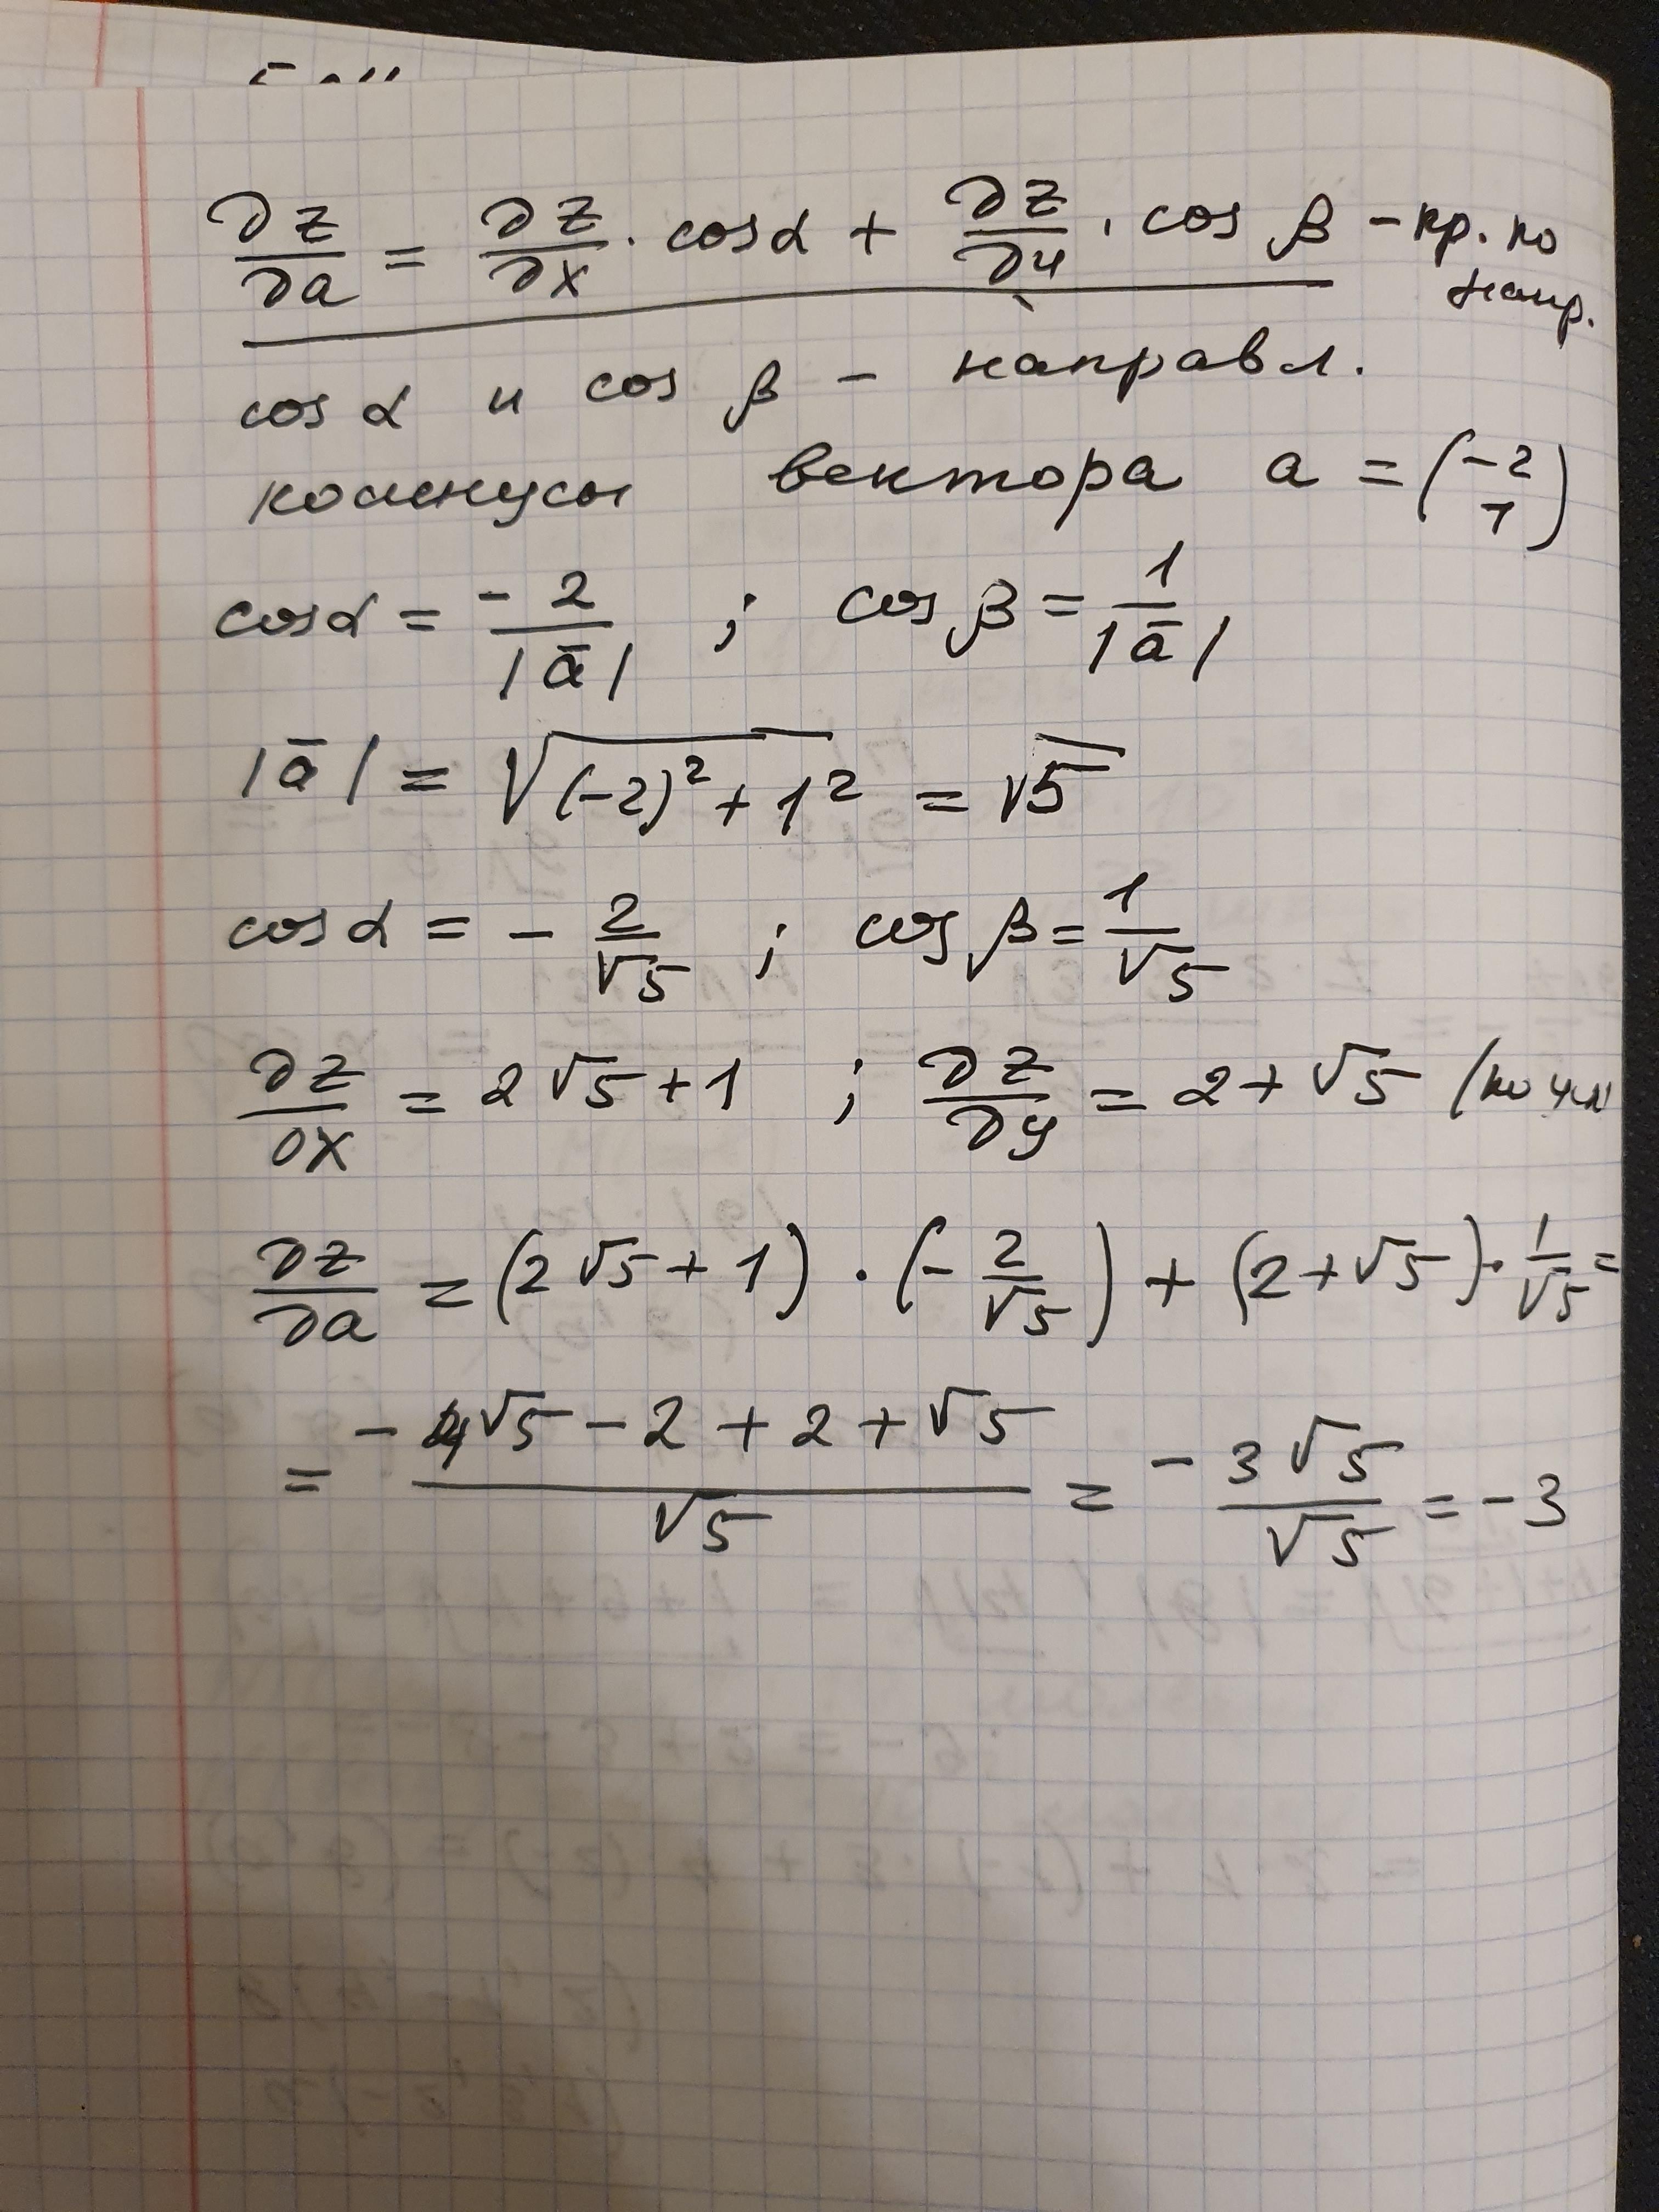 ∂z/∂a = ∂z/∂x · cosα + ∂z/∂y · cos β – пр. по
напр.
cos α и cos β – направл.
косинусы вектора a = (-2 1)
cosα = -2/|ā| ; cos β = 1/|ā|
|ā| = √((-2)² + 1²) = √5
cosα = - 2/√5 ; cos β = 1/√5
∂z/∂x = 2√5 + 1 ; ∂z/∂y = 2 + √5 (по
∂z/∂a = (2√5 + 1) · (- 2/√5) + (2 + √5) · 1/√5 =
= (-4√5 - 2 + 2 + √5)/√5 = -3√5/√5 = -3